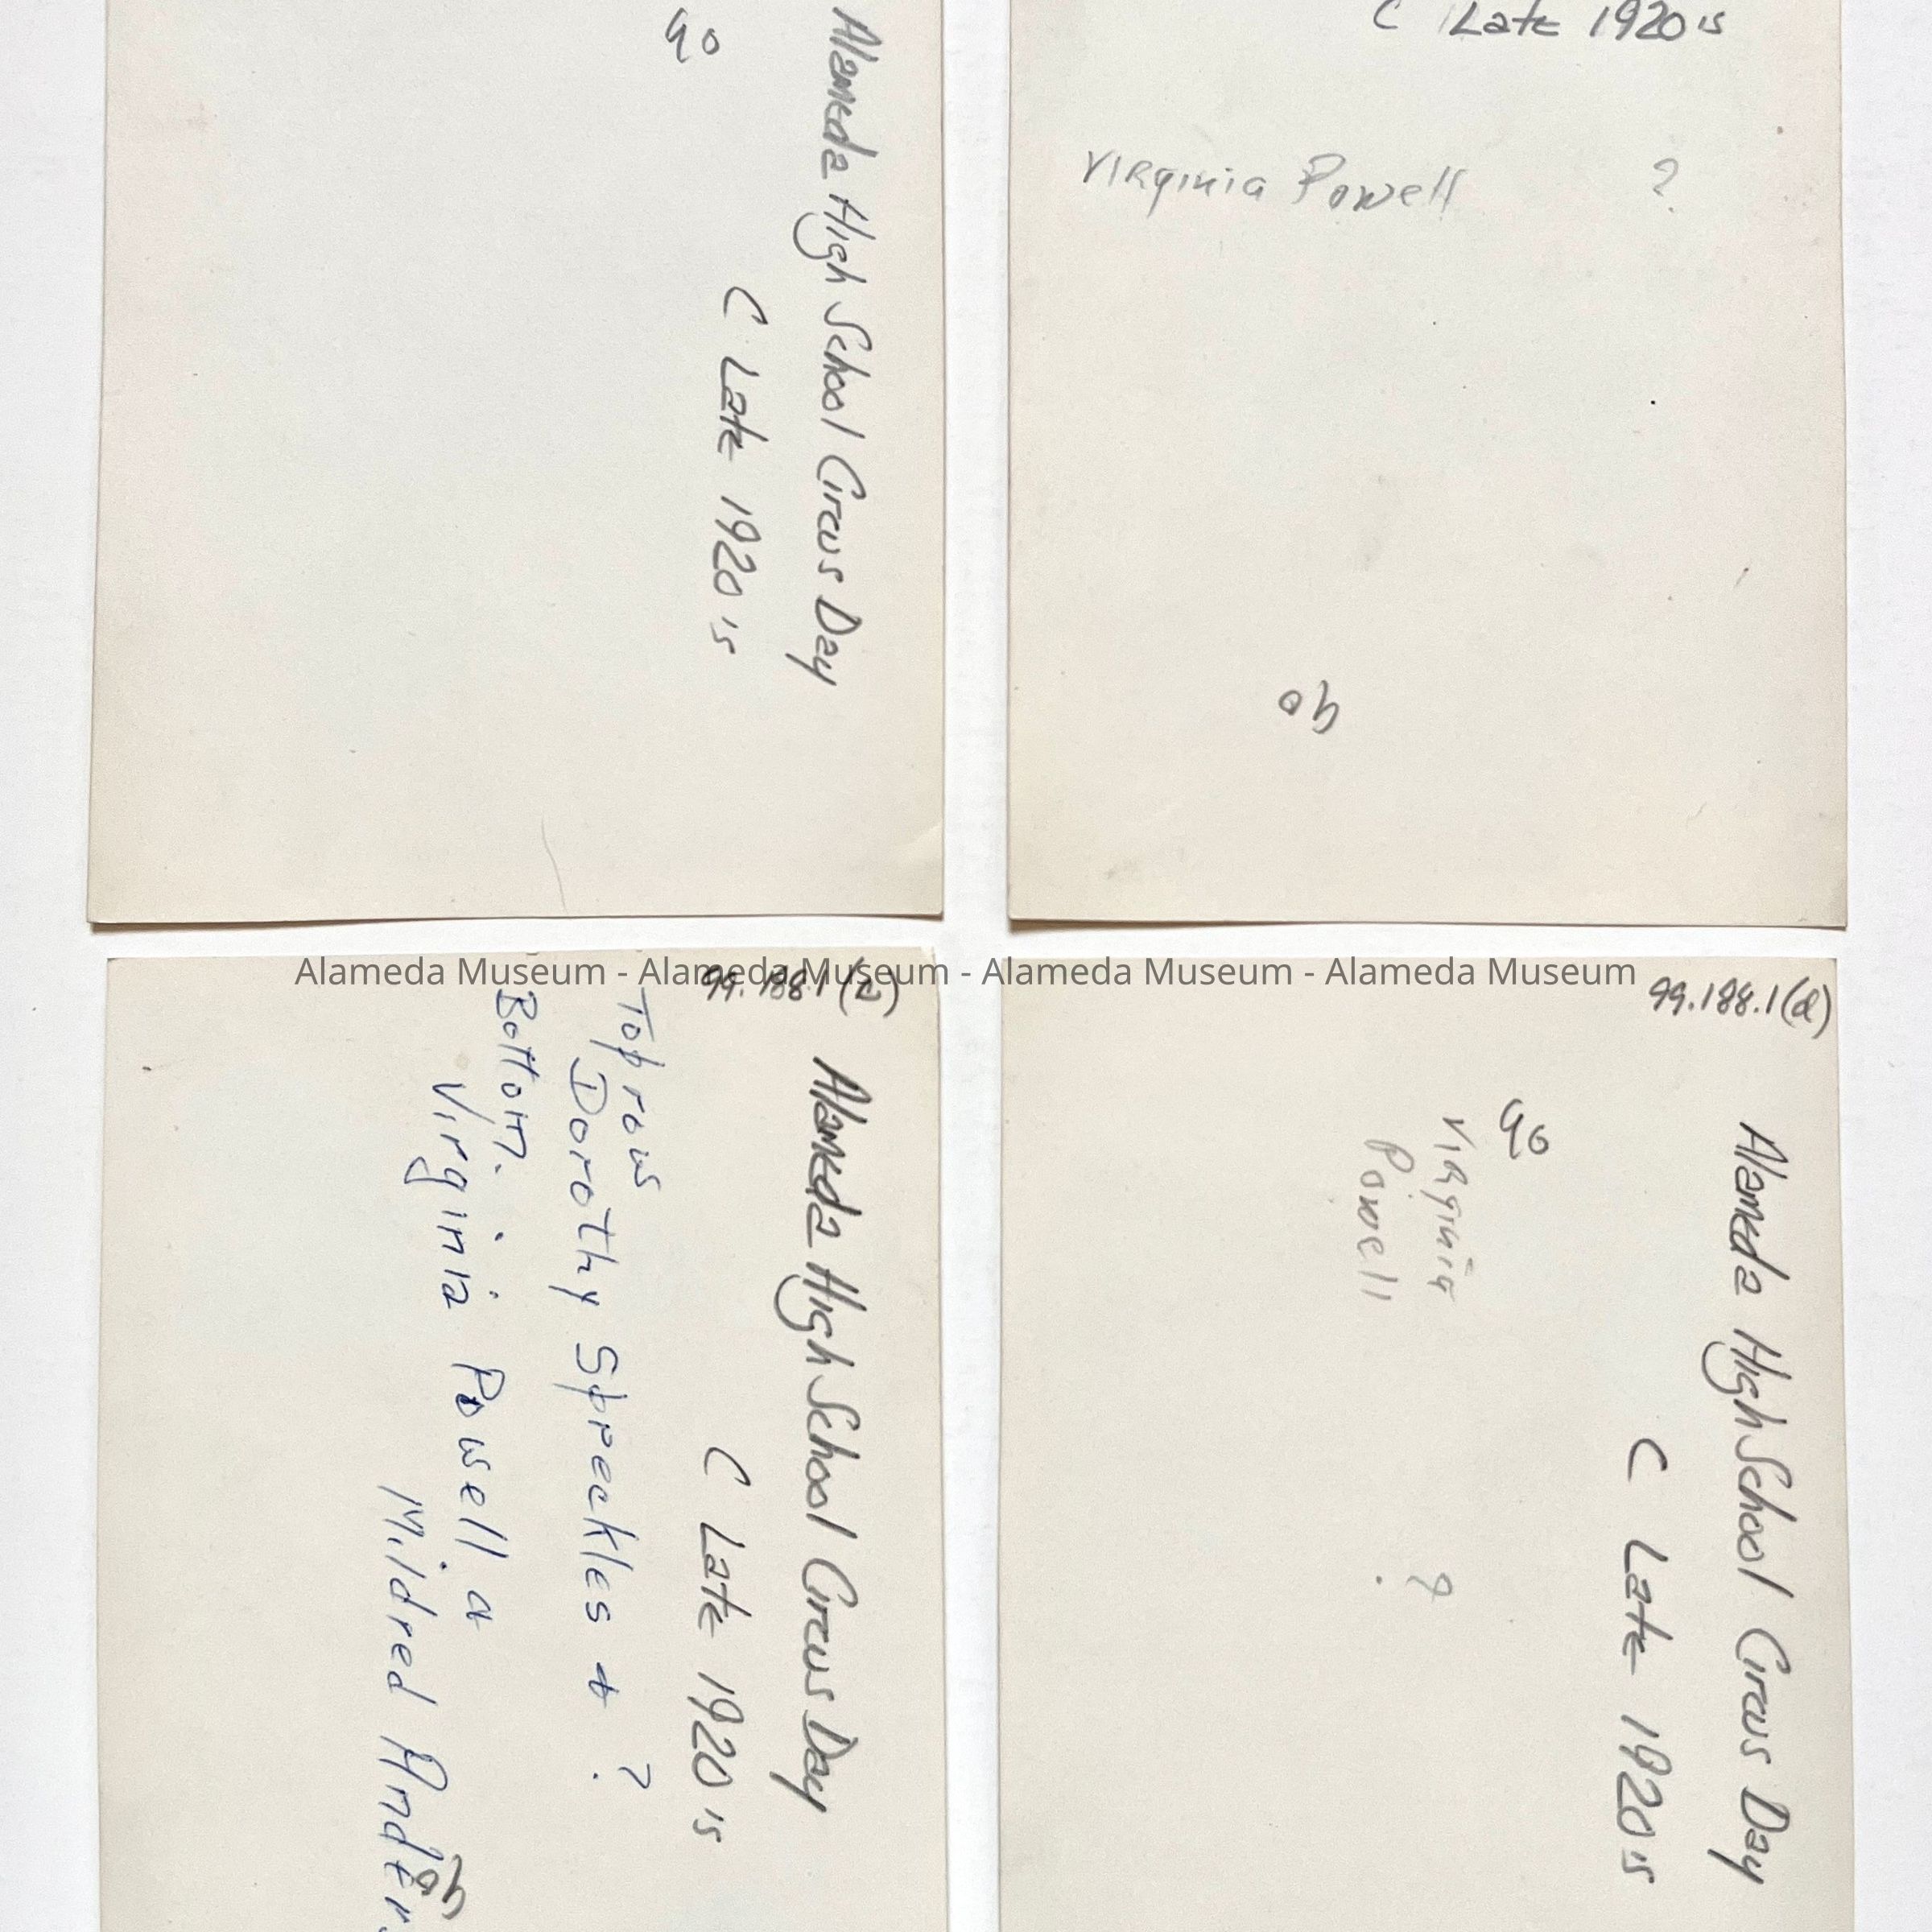 Alameda High School Circus Day
C Late 1920's
90
C Late 1920's
Virginia Powell ?
90
Alameda Museum - Alameda Museum - Alameda Museum - Alameda Museum
Alameda High School Circus Day
C Late 1920's
Top row
Dorothy Spreckles + ?
Bottom.
Virginia Powell a
Mildred Ander
99.188.1(d)
Alameda High School Circus Day
C Late 1920's
90
Virginia ?
Powell